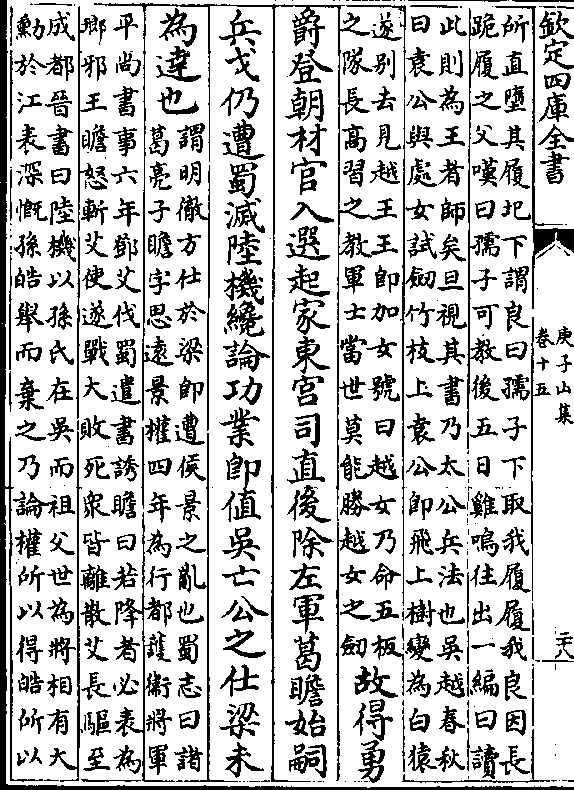 欽定四庫全書
庚子山集
卷十五
二十八
所直墮其履圯下謂良曰孺子下取我履履我良因長
跪履之父嘆曰孺子可教後五日雞鳴徃出一編曰讀
此則為王者師矣旦視其書乃太公兵法也吳越春秋
曰袁公與處女試劒竹枝上袁公即飛上樹變為白猿
遂别去見越王王即加女號曰越女乃命五板
之隊長高習之教軍士當世莫能勝越女之劒
故得勇
爵登朝材官入選起家東宫司直後除左軍葛瞻始嗣
兵戈仍遭蜀滅陸機纔論功業即值吳亡公之仕梁未
為達也
謂明徹方仕於梁即遭侯景之亂也蜀志曰諸
葛亮子瞻字思遠景權四年為行都護衛將軍
平尚書事六年鄧艾伐蜀遣書誘瞻曰若降者必表為
瑯邪王瞻怒斬艾使遂戰大敗死衆皆離散艾長驅至
成都晉書曰陸機以孫氏在吳而祖父世為將相有大
勲於江表深慨孫皓舉而棄之乃論權所以得皓所以